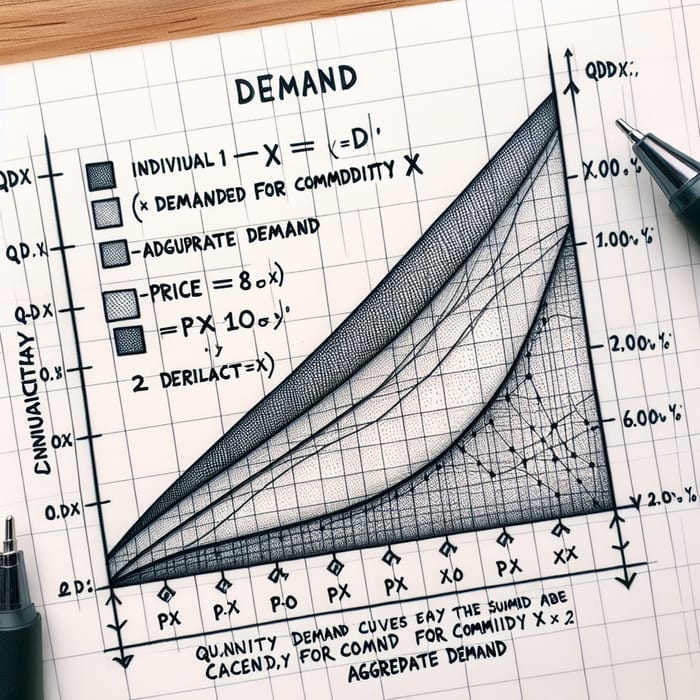 DEMAND
QDX
QD.X
Q-DX
0.X
OX
O.DX
QD:
INDIVIUAL 1 — X = (=D'
(x DEMANDED FOR COMMDDITY X
-ADGUPRATE DEMAND
-PRICE = 8.0x)
= PX 10
2 DERILACT=X)
QDDX:,
X.00.%
1.00%
2.00%
6.00%
2.0.%
PX P.X P.O PX PX XO PX XX
QU.NNITY DEMAND CUVES EAY THE SUMID ABE
CACEND,Y FOR COMND FOR COMMIIDY X x 2
AGGREDATE DEMAND